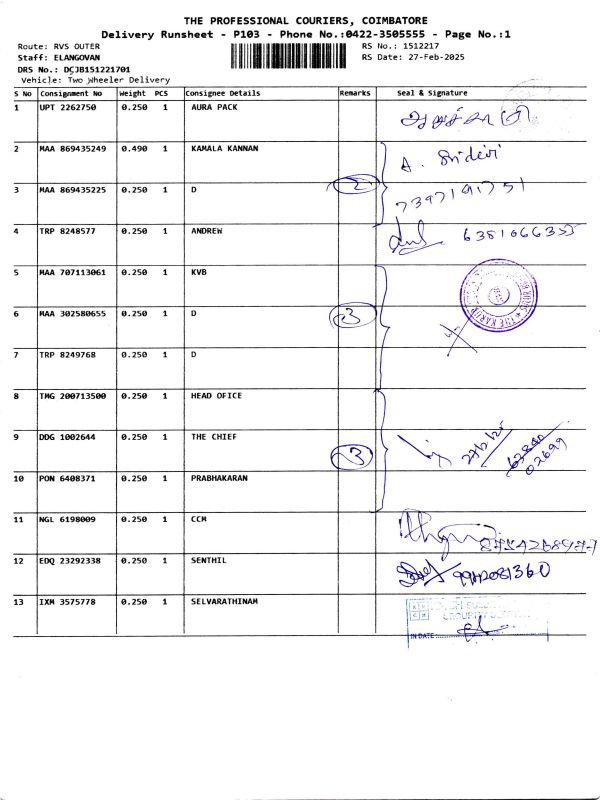 THE PROFESSIONAL COURIERS, COIMBATORE
Delivery Runsheet - P103 - Phone No.:0422-3505555 - Page No.:1
Route: RVS OUTER RS No.: 1512217
Staff: ELANGOVAN RS Date: 27-Feb-2025
DRS No.: DCJB151221701
Vehicle: Two Wheeler Delivery
S No Consignment No Weight PCS Consignee Details Remarks Seal & Signature
1 UPT 2262750 0.250 1 AURA PACK
2 MAA 869435249 0.490 1 KAMALA KANNAN A. Sridevi
3 MAA 869435225 0.250 1 D 2 7397191751
4 TRP 8248577 0.250 1 ANDREW 6381066355
5 MAA 707113061 0.250 1 KVB
6 MAA 302580655 0.250 1 D 3
7 TRP 8249768 0.250 1 D
8 TMG 200713500 0.250 1 HEAD OFICE
9 DDG 1002644 0.250 1 THE CHIEF 3 27/2/25 02699
10 PON 6408371 0.250 1 PRABHAKARAN
11 NGL 6198009 0.250 1 CCM
12 EDQ 23292338 0.250 1 SENTHIL
13 IXM 3575778 0.250 1 SELVARATHINAM
IN DATE